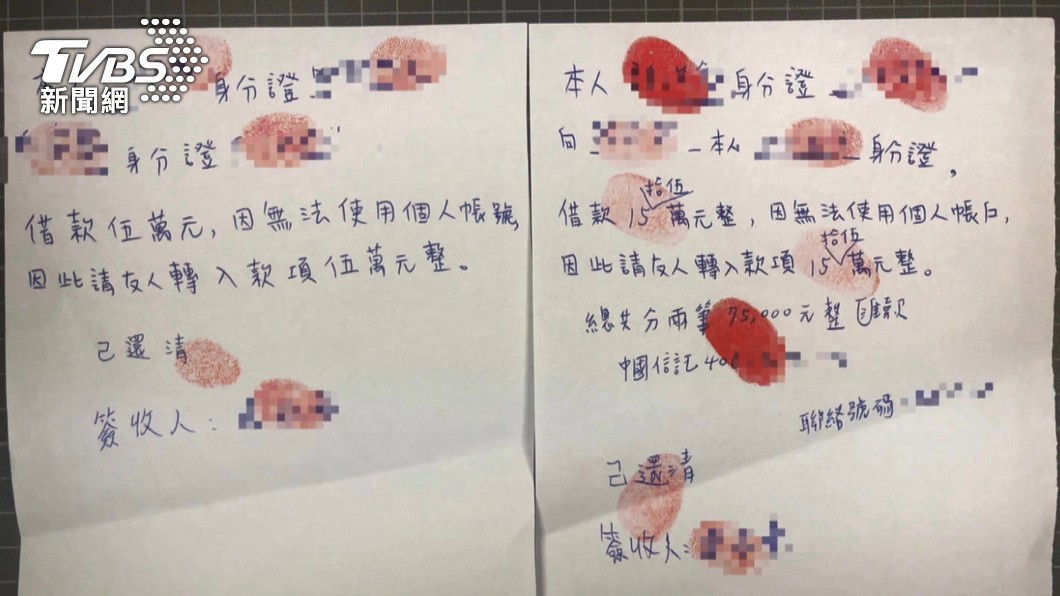 TVBS
新聞網
身分證
身分證
借款伍萬元,因無法使用個人帳號,
因此請友人轉入款項伍萬元整。
己還清
簽收人:
本人 身分證
向 本人 身分證,
拾伍
借款15萬元整,因無法使用個人帳戶,
拾伍
因此請友人轉入款項15萬元整。
總共分兩筆75,000元整匯款
中國信託40
聯絡號碼
己還清
簽收人: